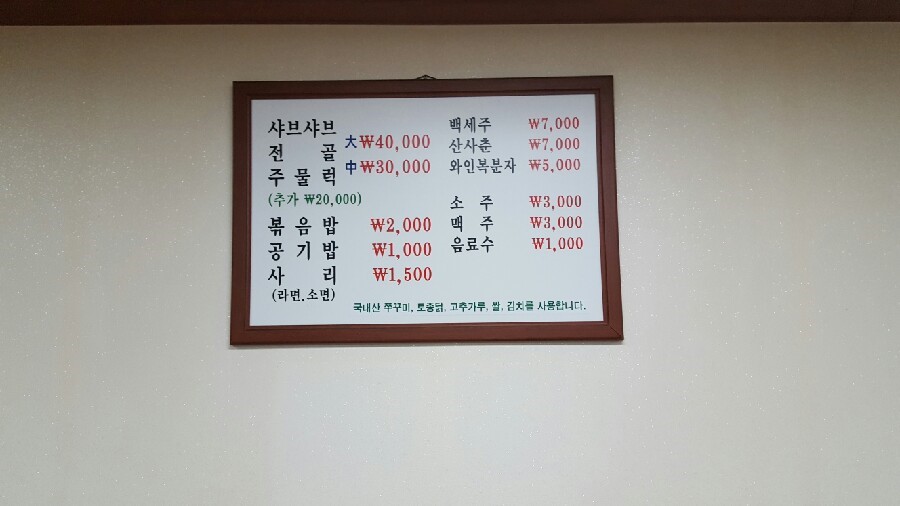 샤브샤브
전 골 大 ₩40,000
주 물 럭 中 ₩30,000
(추가 ₩20,000)
볶 음 밥 ₩2,000
공 기 밥 ₩1,000
사 리 ₩1,500
(라면.소면)
백세주 ₩7,000
산사춘 ₩7,000
와인복분자 ₩5,000
소 주 ₩3,000
맥 주 ₩3,000
음료수 ₩1,000
국내산 쭈꾸미, 토종닭, 고추가루, 쌀, 김치를 사용합니다.